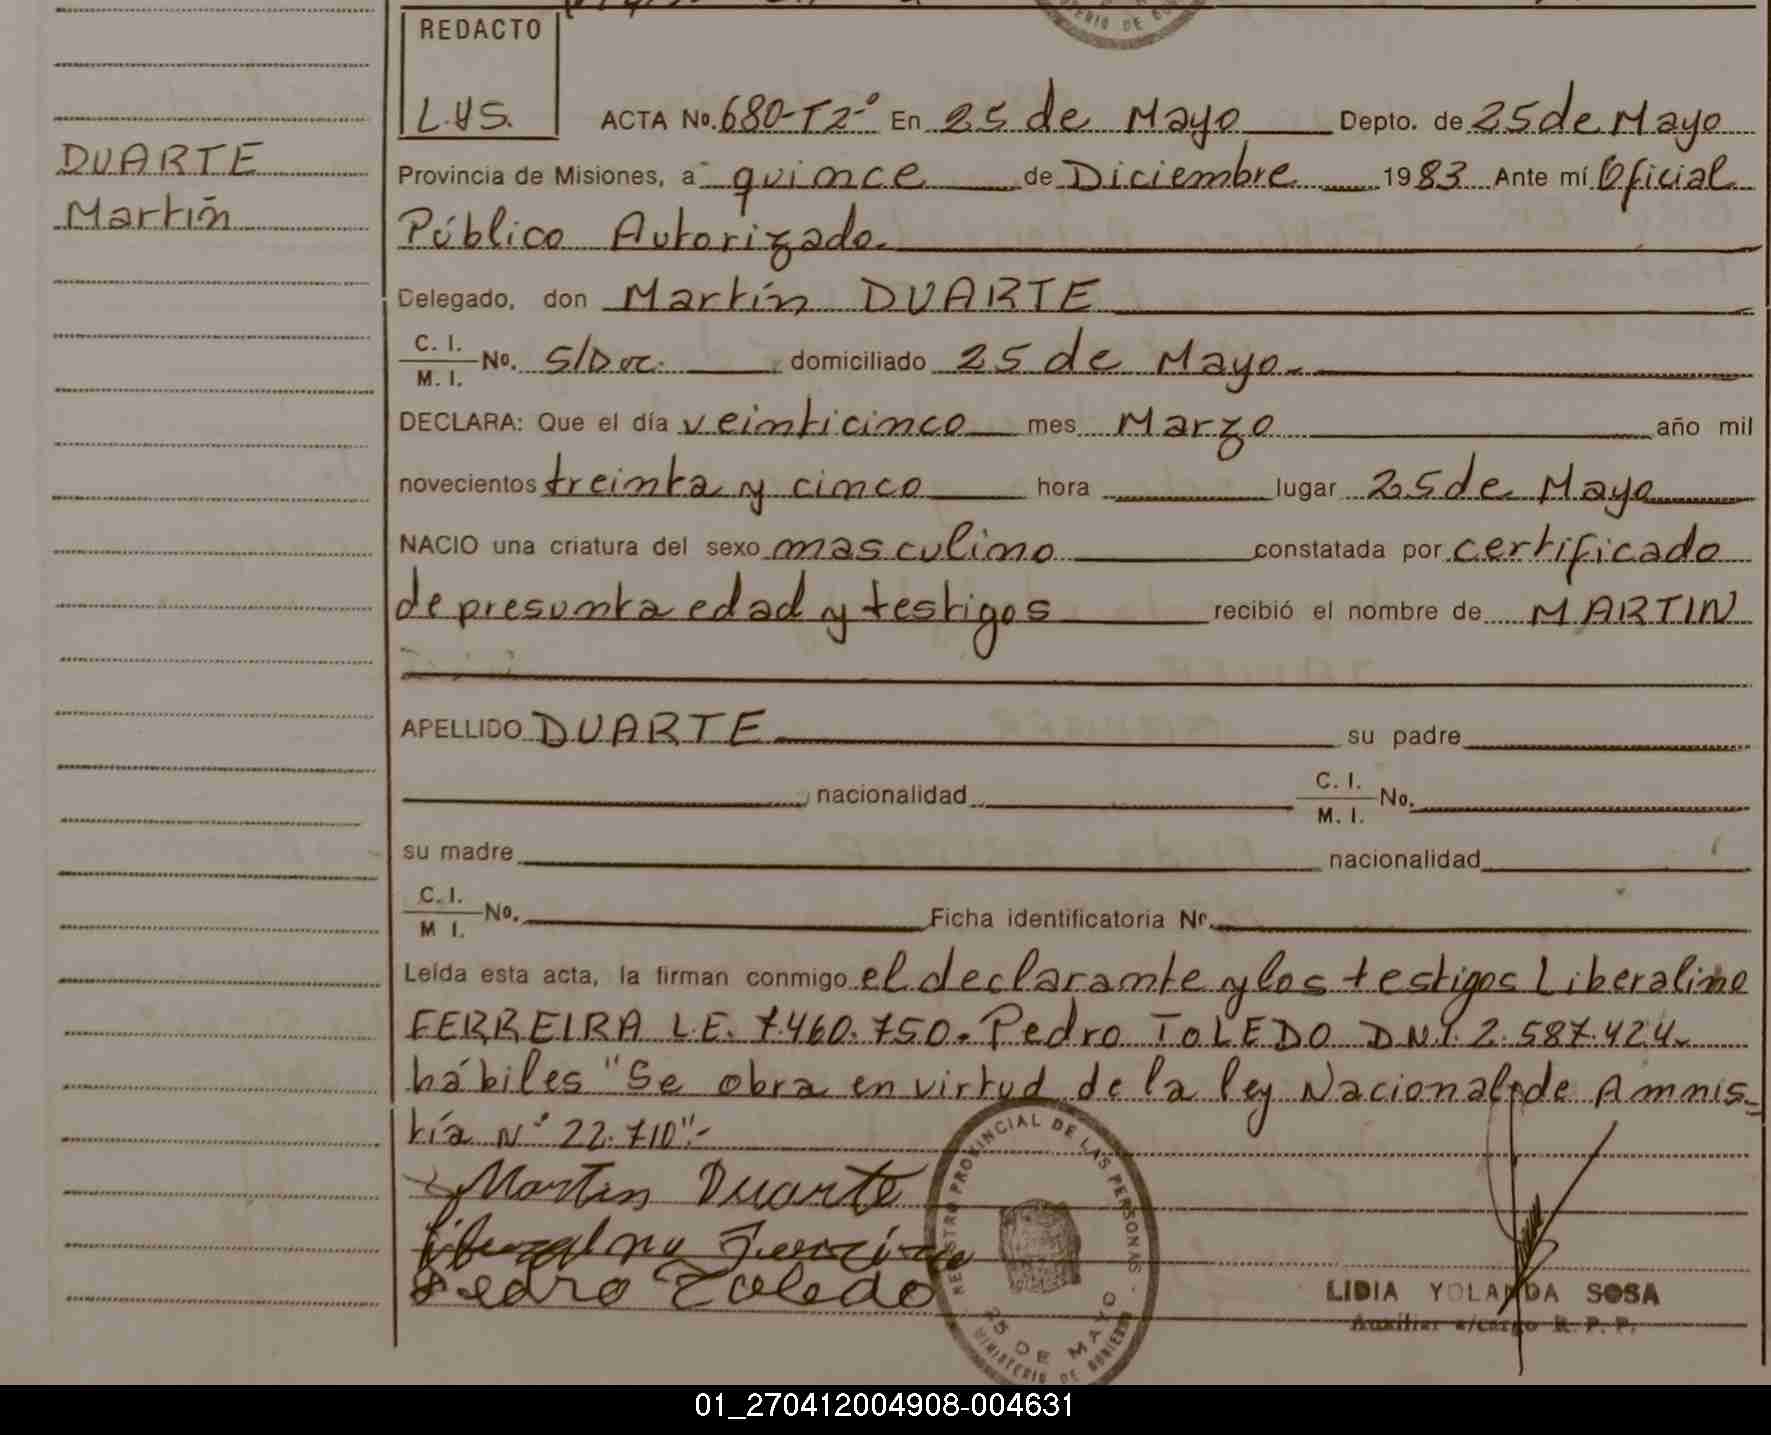 REDACTO
L.Y.S.
ACTA No. 680-T2º En 25 de Mayo Depto. de 25 de Mayo
DUARTE
Martín
Provincia de Misiones, a quince de Diciembre 1983 Ante mí Oficial
Público Autorizado.
Delegado, don Martín DUARTE
C. I.
M. I. No. S/Doc. domiciliado 25 de Mayo.
DECLARA: Que el día veinticinco mes Marzo año mil
novecientos treinta y cinco hora lugar 25 de Mayo
NACIO una criatura del sexo masculino constatada por certificado
de presunta edad y testigos recibió el nombre de MARTIN
APELLIDO DUARTE su padre
nacionalidad C. I.
M. I. No.
su madre nacionalidad
C. I.
M I. No. Ficha identificatoria Nº
Leída esta acta, la firman conmigo el declarante y los testigos Liberalino
FERREIRA L.E. 7.460.750. Pedro TOLEDO D.N.I. 2.587.424.
hábiles "Se obra en virtud de la ley Nacional de Amnis=
tía Nº 22.710".-
Martin Duarte
Pedro Toledo
REGISTRO PROVINCIAL DE LAS PERSONAS
25 DE MAYO
MINISTERIO DE GOBIERNO
LIDIA YOLANDA SOSA
Auxiliar a/cargo R. P. P.
01_270412004908-004631